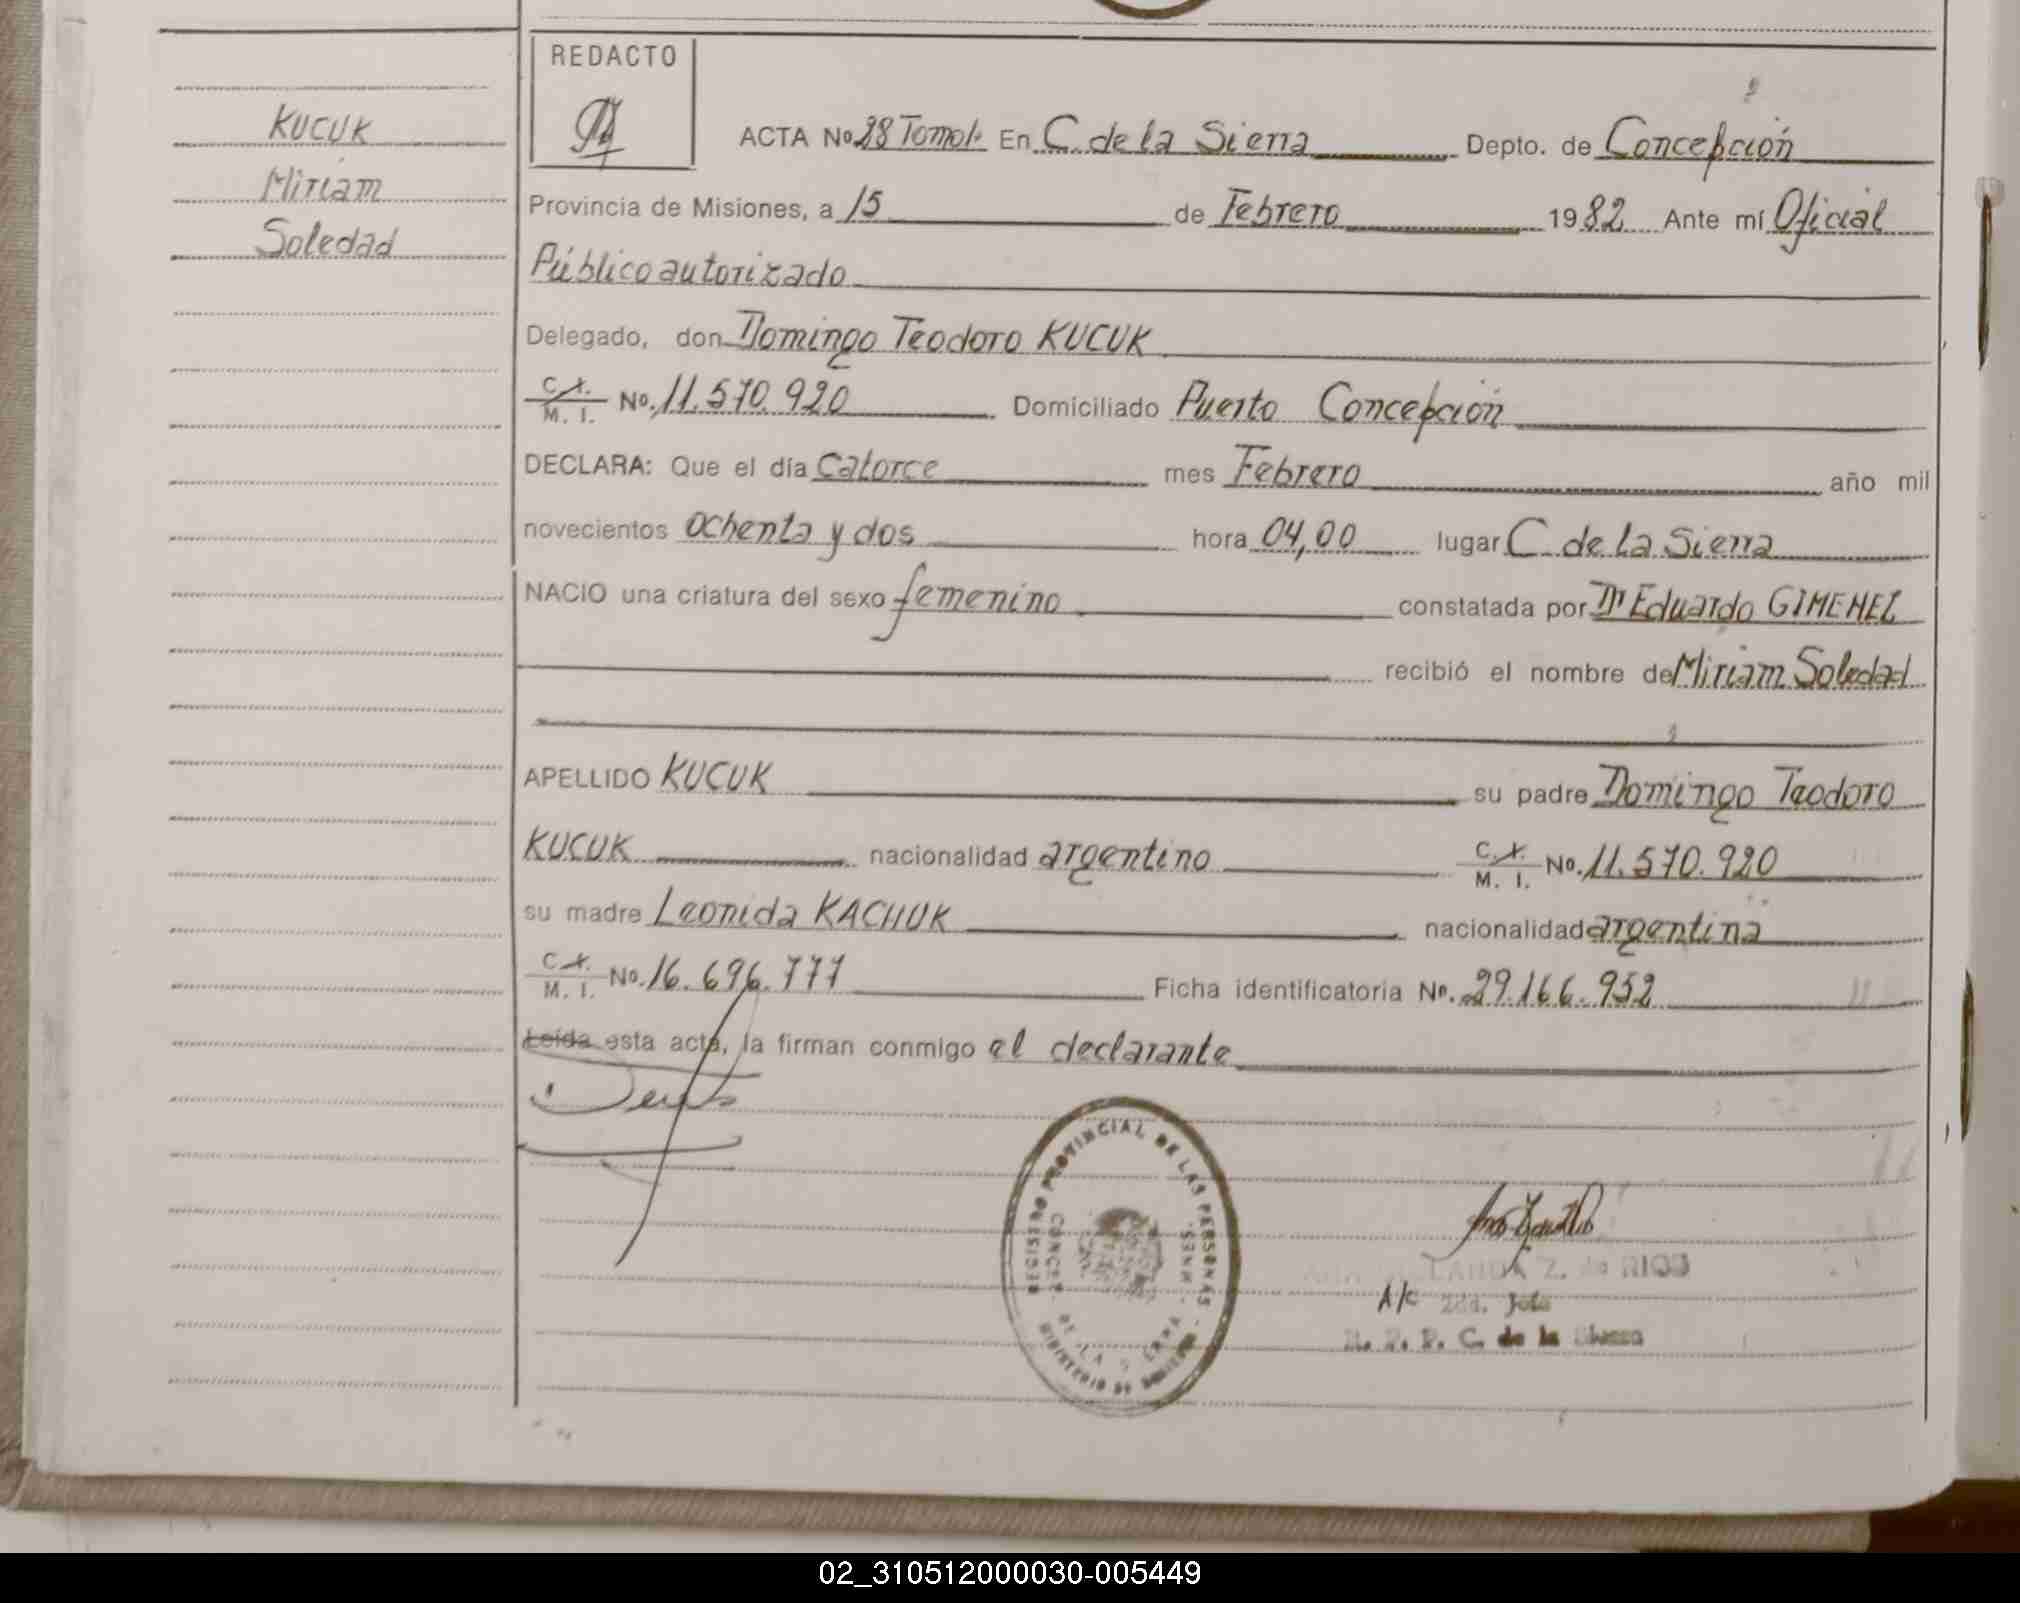 REDACTO
KUCUK
Miriam
Soledad
ACTA No 28 Tomo I. En C. de la Sierra Depto. de Concepción
Provincia de Misiones, a 15 de Febrero 1982 Ante mí Oficial
Público autorizado
Delegado, don Domingo Teodoro KUCUK
C. I. M. I. No. 11.570.920 Domiciliado Puerto Concepción
DECLARA: Que el día Catorce mes Febrero año mil
novecientos ochenta y dos hora 04,00 lugar C. de la Sierra
NACIO una criatura del sexo femenino constatada por Dr Eduardo GIMENEZ
recibió el nombre de Miriam Soledad
APELLIDO KUCUK su padre Domingo Teodoro
KUCUK nacionalidad argentino C. I. M. I. No. 11.570.920
su madre Leonida KACHUK nacionalidad argentina
C. I. M. I. No. 16.696.777 Ficha identificatoria No. 29.166.952
Leída esta acta, la firman conmigo el declarante
REGISTRO PROVINCIAL DE LAS PERSONAS - MINISTERIO DE GOBIERNO
CONCEP. DE LA S - MNES.
Z. de RIOS
A/c 2da. Jefa
R. P. P. C. de la Sierra
02_310512000030-005449